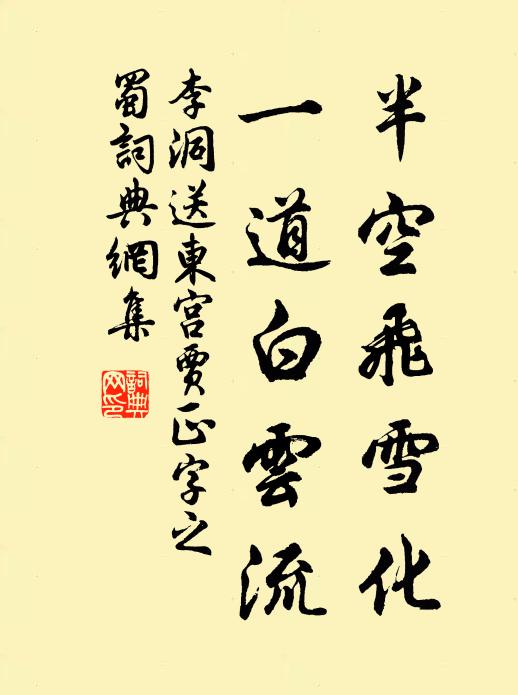 半空飛雪化
一道白雲流
李洞送東宮賈正字之
蜀詞典網集
詞典網印